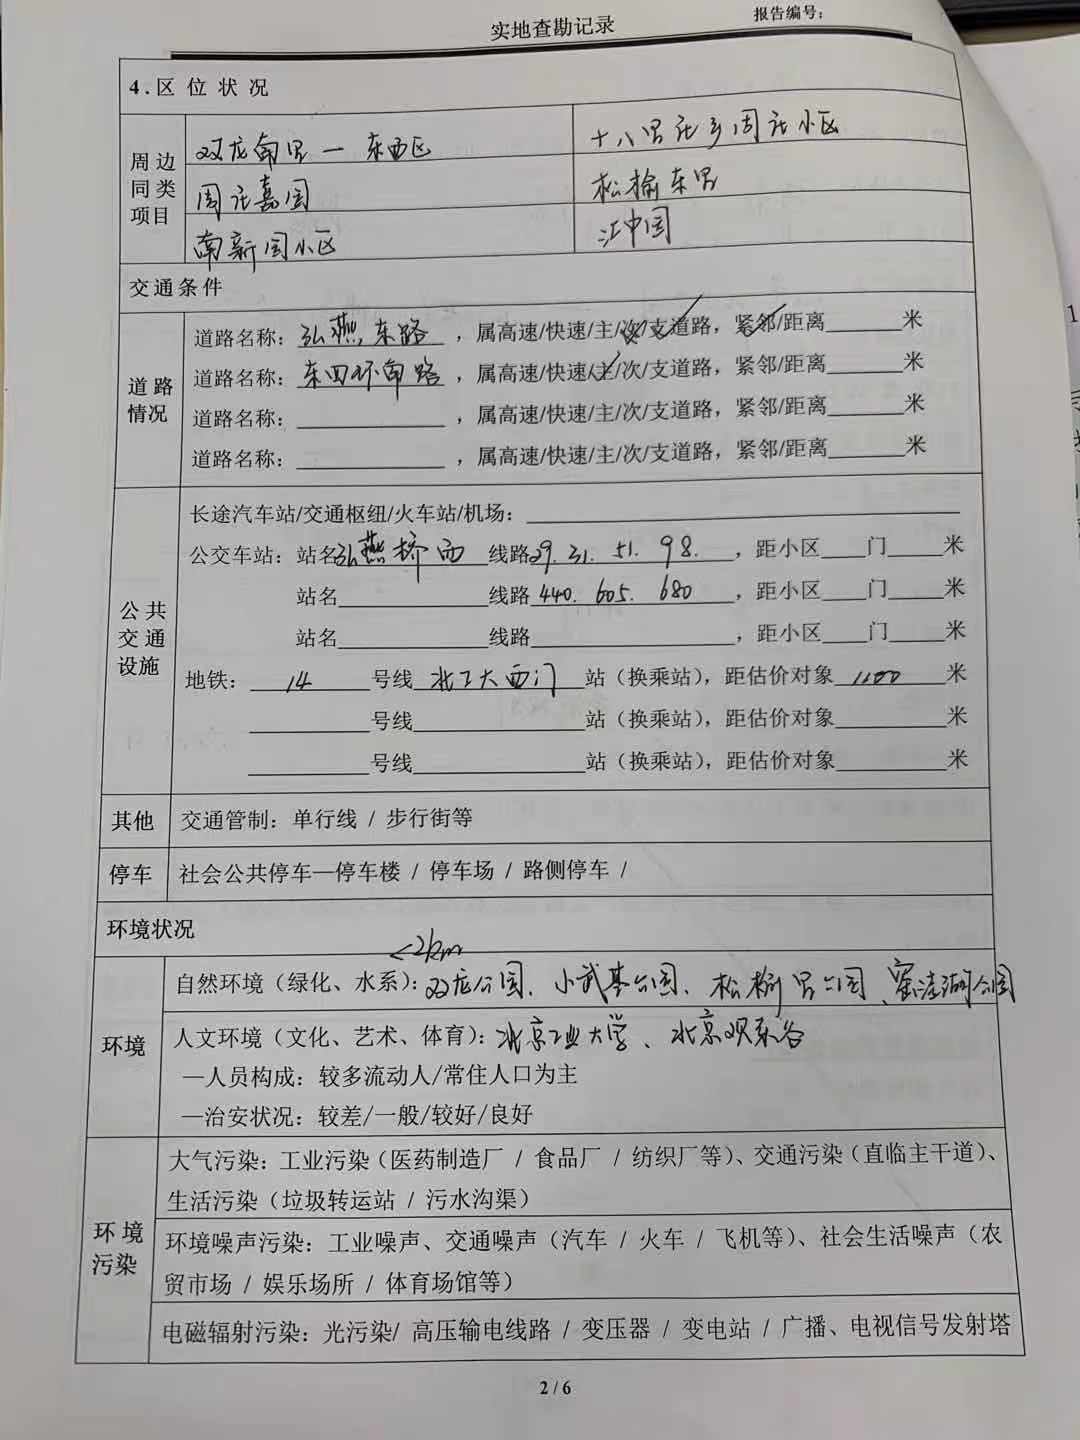 实地查勘记录
报告编号：
4.区位状况
周边同类项目
双龙南里一 东西区
十八里店乡周庄小区
周庄嘉园
松榆东里
南新园小区
江中园
交通条件
道路情况
道路名称：弘燕东路，属高速/快速/主/次/支道路，紧邻/距离______米
道路名称：东四环南路，属高速/快速/主/次/支道路，紧邻/距离______米
道路名称：____________，属高速/快速/主/次/支道路，紧邻/距离______米
道路名称：____________，属高速/快速/主/次/支道路，紧邻/距离______米
公共交通设施
长途汽车站/交通枢纽/火车站/机场：____________
公交车站：站名弘燕桥西 线路29. 31. 51. 98.，距小区____门____米
站名____________线路440. 605. 680，距小区____门____米
站名____________线路____________，距小区____门____米
地铁：14号线 北工大西门 站（换乘站），距估价对象1100米
________号线____________站（换乘站），距估价对象________米
________号线____________站（换乘站），距估价对象________米
其他 交通管制：单行线 / 步行街等
停车 社会公共停车—停车楼 / 停车场 / 路侧停车 /
环境状况
<2km
环境
自然环境（绿化、水系）：双龙公园、小武基公园、松榆里公园、窑洼湖公园
人文环境（文化、艺术、体育）：北京工业大学、北京欢乐谷
—人员构成：较多流动人/常住人口为主
—治安状况：较差/一般/较好/良好
环境污染
大气污染：工业污染（医药制造厂 / 食品厂 / 纺织厂等）、交通污染（直临主干道）、
生活污染（垃圾转运站 / 污水沟渠）
环境噪声污染：工业噪声、交通噪声（汽车 / 火车 / 飞机等）、社会生活噪声（农
贸市场 / 娱乐场所 / 体育场馆等）
电磁辐射污染：光污染/ 高压输电线路 / 变压器 / 变电站 / 广播、电视信号发射塔
2 / 6